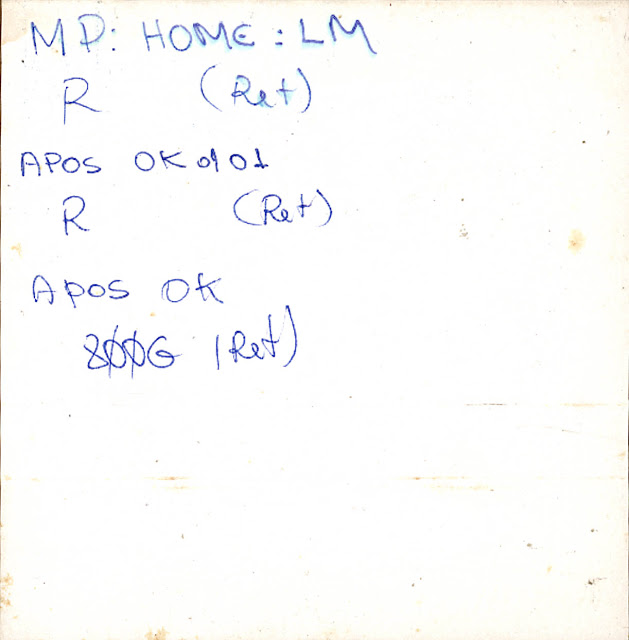 MP: HOME: LM
R (Ret)
APOS OK
R (Ret)
APOS OK
800G (Ret)